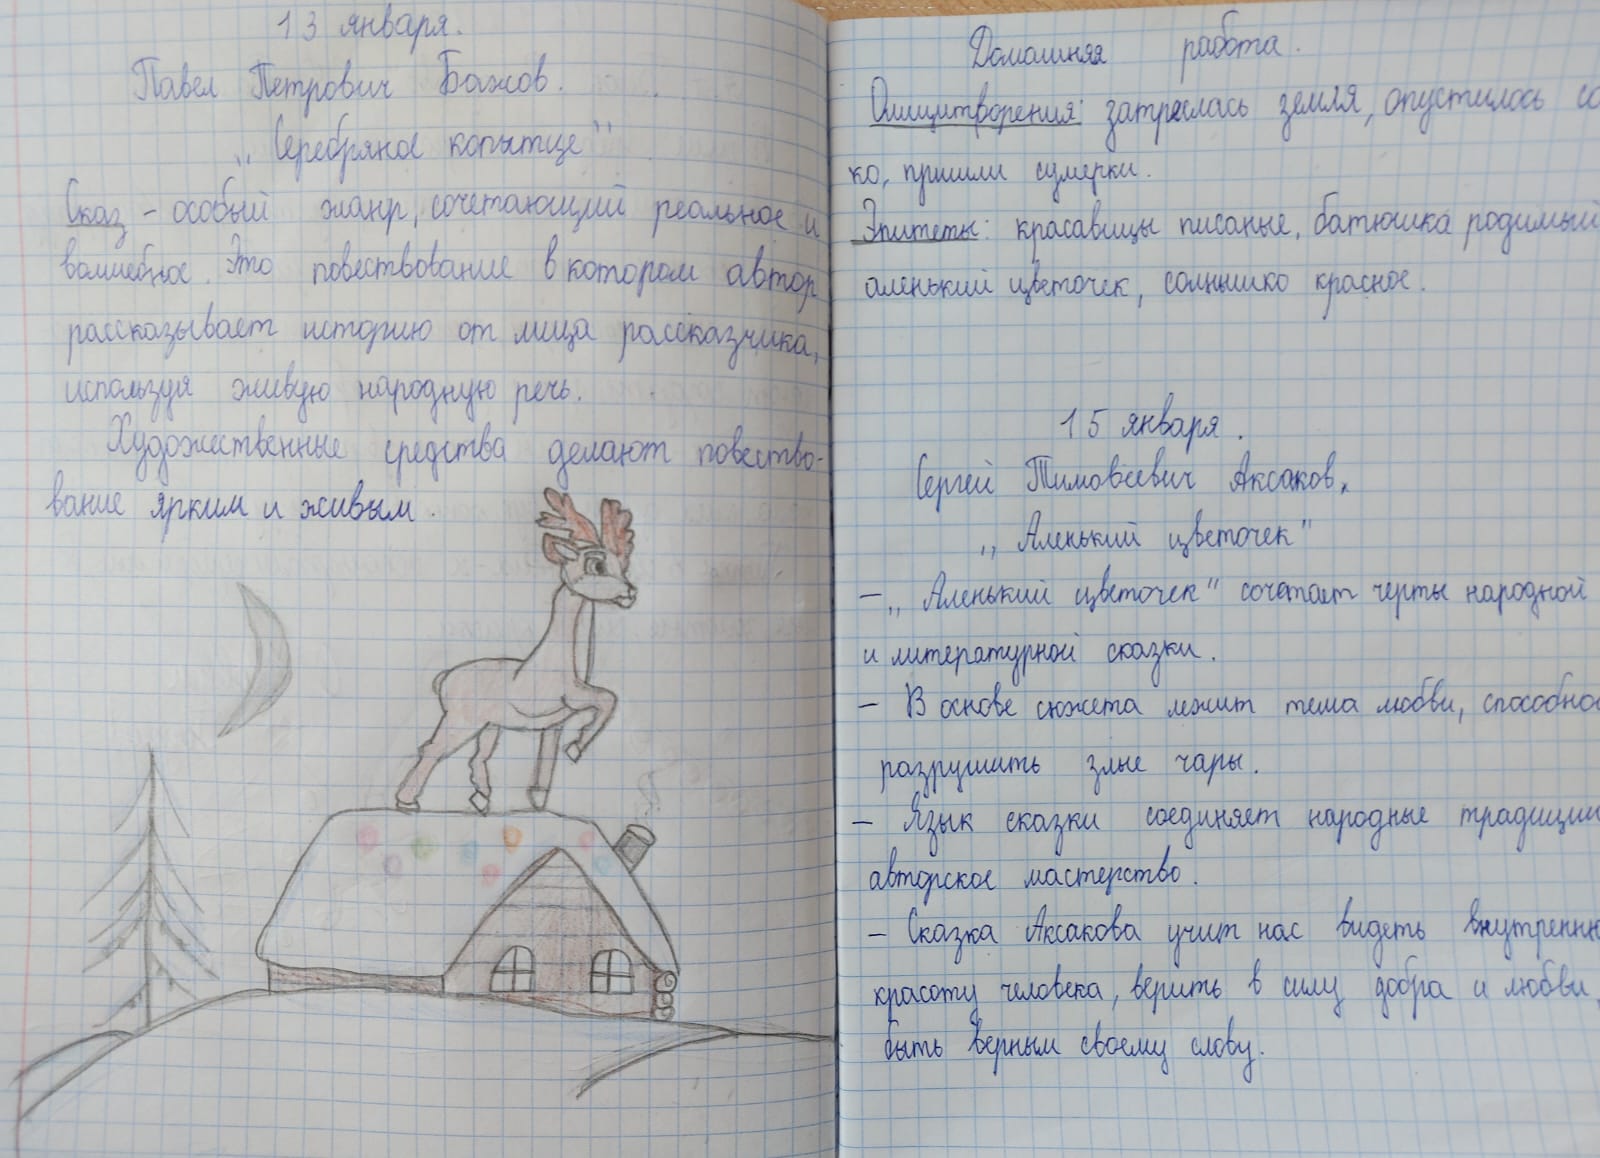 13 января.
Павел Петрович Бажов.
„Серебряное копытце"
Сказ – особый жанр, сочетающий реальное и
волшебное. Это повествование в котором автор
рассказывает историю от лица рассказчика,
используя живую народную речь.
Художественные средства делают повество-
вание ярким и живым.
Домашняя работа.
Олицитворения: затряслась земля, опустилось со
ко, пришли сумерки.
Эпитеты: красавицы писаные, батюшка родимый
аленький цветочек, солнышко красное.
15 января.
Сергей Тимовеевич Аксаков.
„Аленький цветочек"
– „Аленький цветочек" сочетает черты народной
и литературной сказки.
– В основе сюжета лежит тема любви, способно
разрушить злые чары.
– Язык сказки соединяет народные традиции
авторское мастерство.
– Сказка Аксакова учит нас видеть внутренню
красоту человека, верить в силу добра и любви,
быть верным своему слову.